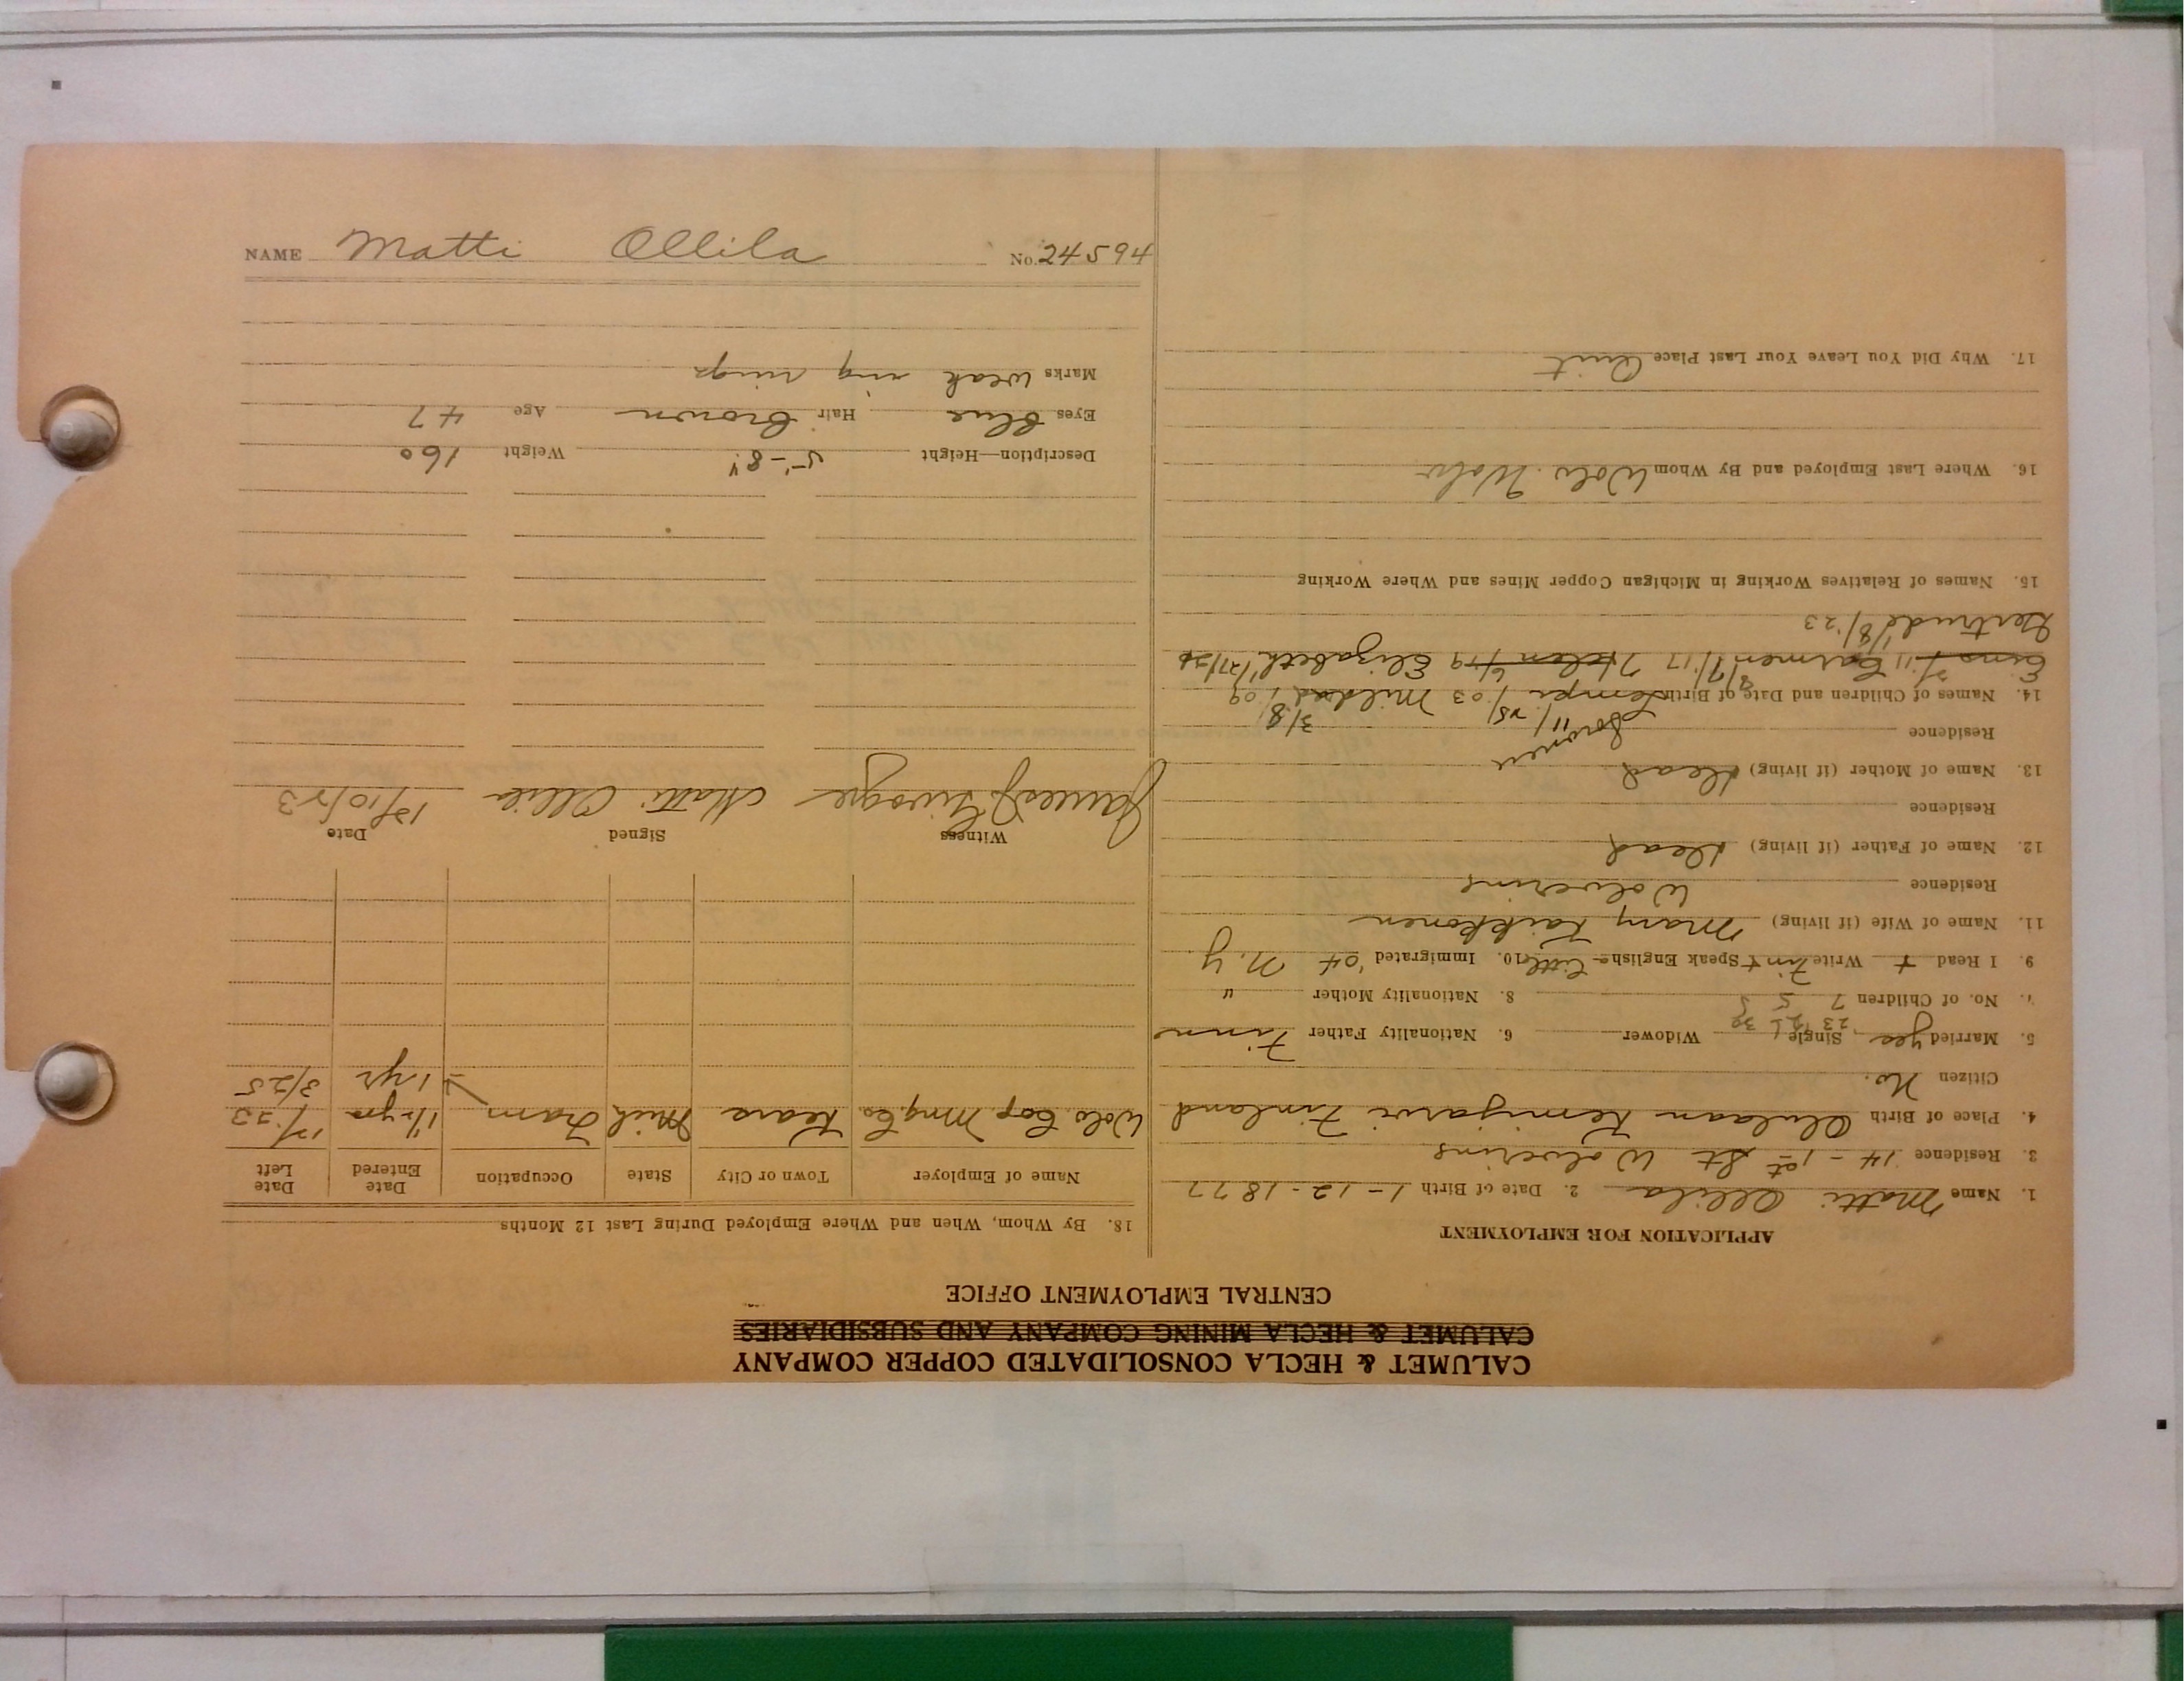 NAME Matti Ollila No. 24594
CALUMET & HECLA CONSOLIDATED COPPER COMPANY
CALUMET & HECLA MINING COMPANY AND SUBSIDIARIES
CENTRAL EMPLOYMENT OFFICE
APPLICATION FOR EMPLOYMENT
1. Name Matti Ollila 2. Date of Birth 1-12-1877
3. Residence 14-1st St Wolverine
4. Place of Birth Kemijarvi Finland
Citizen No.
5. Married yes Single Widower 6. Nationality Father Finn
7. No. of Children 7 5 8. Nationality Mother "
9. I Read + Write Finn + Speak English little 10. Immigrated '04 N.Y
11. Name of Wife (if living) Mary
Residence Wolverine
12. Name of Father (if living) Dead
Residence
13. Name of Mother (if living) Dead
Residence
14. Names of Children and Date of Birth 03 09
Helen 6/19 Elizabeth
Gertrude 1/8/23
15. Names of Relatives Working in Michigan Copper Mines and Where Working
16. Where Last Employed and By Whom Wolv. Wolv
17. Why Did You Leave Your Last Place Quit
18. By Whom, When and Where Employed During Last 12 Months
Name of Employer Town or City State Occupation Date Entered Date Left
Wolv. Cop. Mng. Co. Kears Mich Tram 1 1/2 yrs
1 yr 3/25
Witness Signed Date
James Matti Ollila 12/10/23
Description—Height 5'-8" Weight 160
Eyes Blue Hair Brown Age 47
Marks Weak